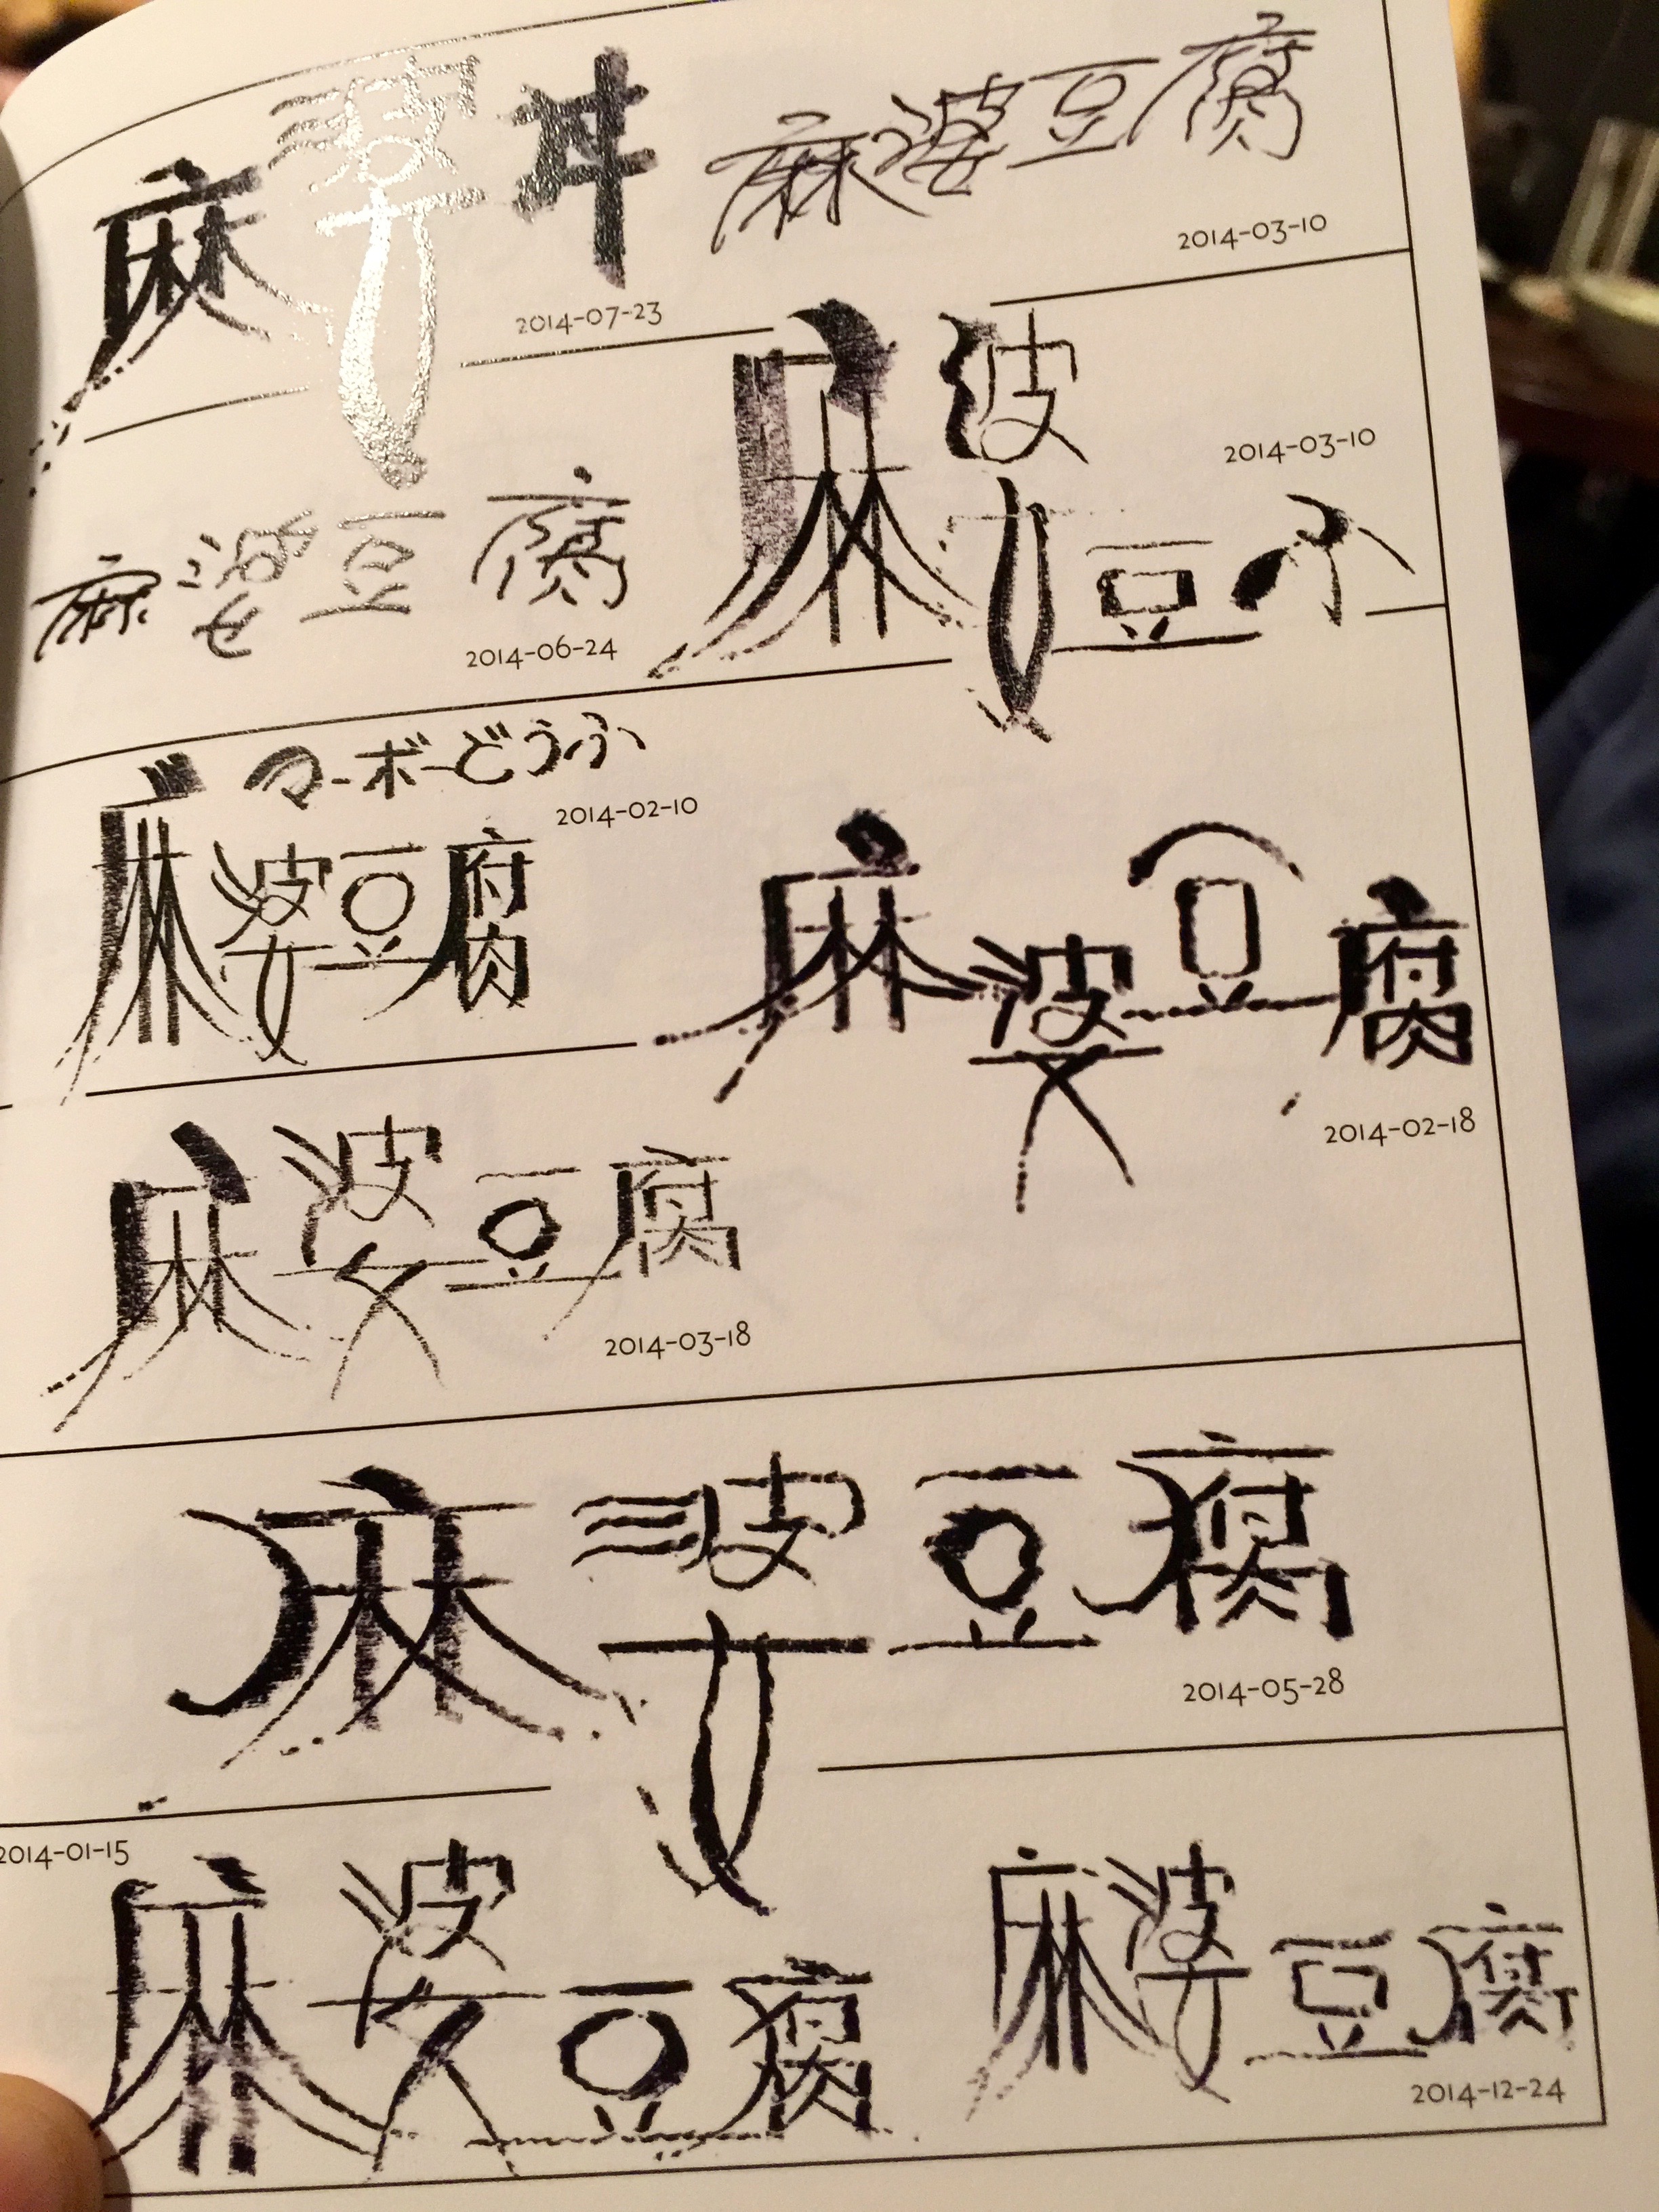 麻婆丼
2014-07-23
麻婆豆腐
2014-03-10
麻婆豆腐
2014-06-24
麻婆豆ふ
2014-03-10
マーボーどうふ
麻婆豆腐
2014-02-10
麻婆豆腐
2014-02-18
麻婆豆腐
2014-03-18
麻婆豆腐
2014-05-28
2014-01-15
麻婆豆腐
麻婆豆腐
2014-12-24